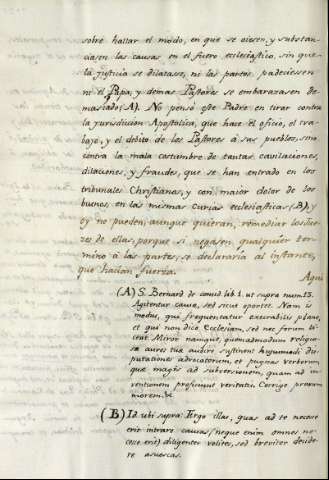 sobre hallar el modo, en que se oiesen, y substan-
ciasen las causas en el fuero ecclesiastico, sin que
la justicia se dilatase, ni las partes padeciessen
ni el Papa, y demas Pastores se embarazasen de-
masiado (A). No pensó este Padre en tirar contra
la jurisdicion Apostolica, que hace el oficio, el tra-
bajo, y el debito de los Pastores á sus pueblos, sino
contra la mala costumbre de tantas cavilaciones,
dilaciones, y fraudes, que se han entrado en los
tribunales Christianos, y con maior dolor de los
buenos, en las mismas curias ecclesiasticas (B), y
oy no pueden, aunque quieran, remediar los Jue-
zes de ellas, porque si negasen qualquier ter-
mino á las partes, se declararia al instante,
que hacian fuerza.
Aqui
(A) S. Bernard de consid. lib. 1. ut supra num. 13.
Agitentur causæ, sed sicut oportet. Nam is
modus, qui frequentatur execrabilis plane,
et qui non dico Ecclesiam, sed nec forum de-
ceat. Miror namque, quemadmodum religio-
sæ aures tuæ audire sustinent hujusmodi dis-
putationes advocatorum, et pugnas verborum,
quæ magis ad subversionem, quam ad in-
ventionem proficiunt veritatis. Corrige pravum
morem &
(B) Id. ubi supra: Ergo illas, quas ad te necesse
erit intrare causas (neque enim omnes ne-
cesse erit) diligenter velites, sed breviter decide-
re assuescas.